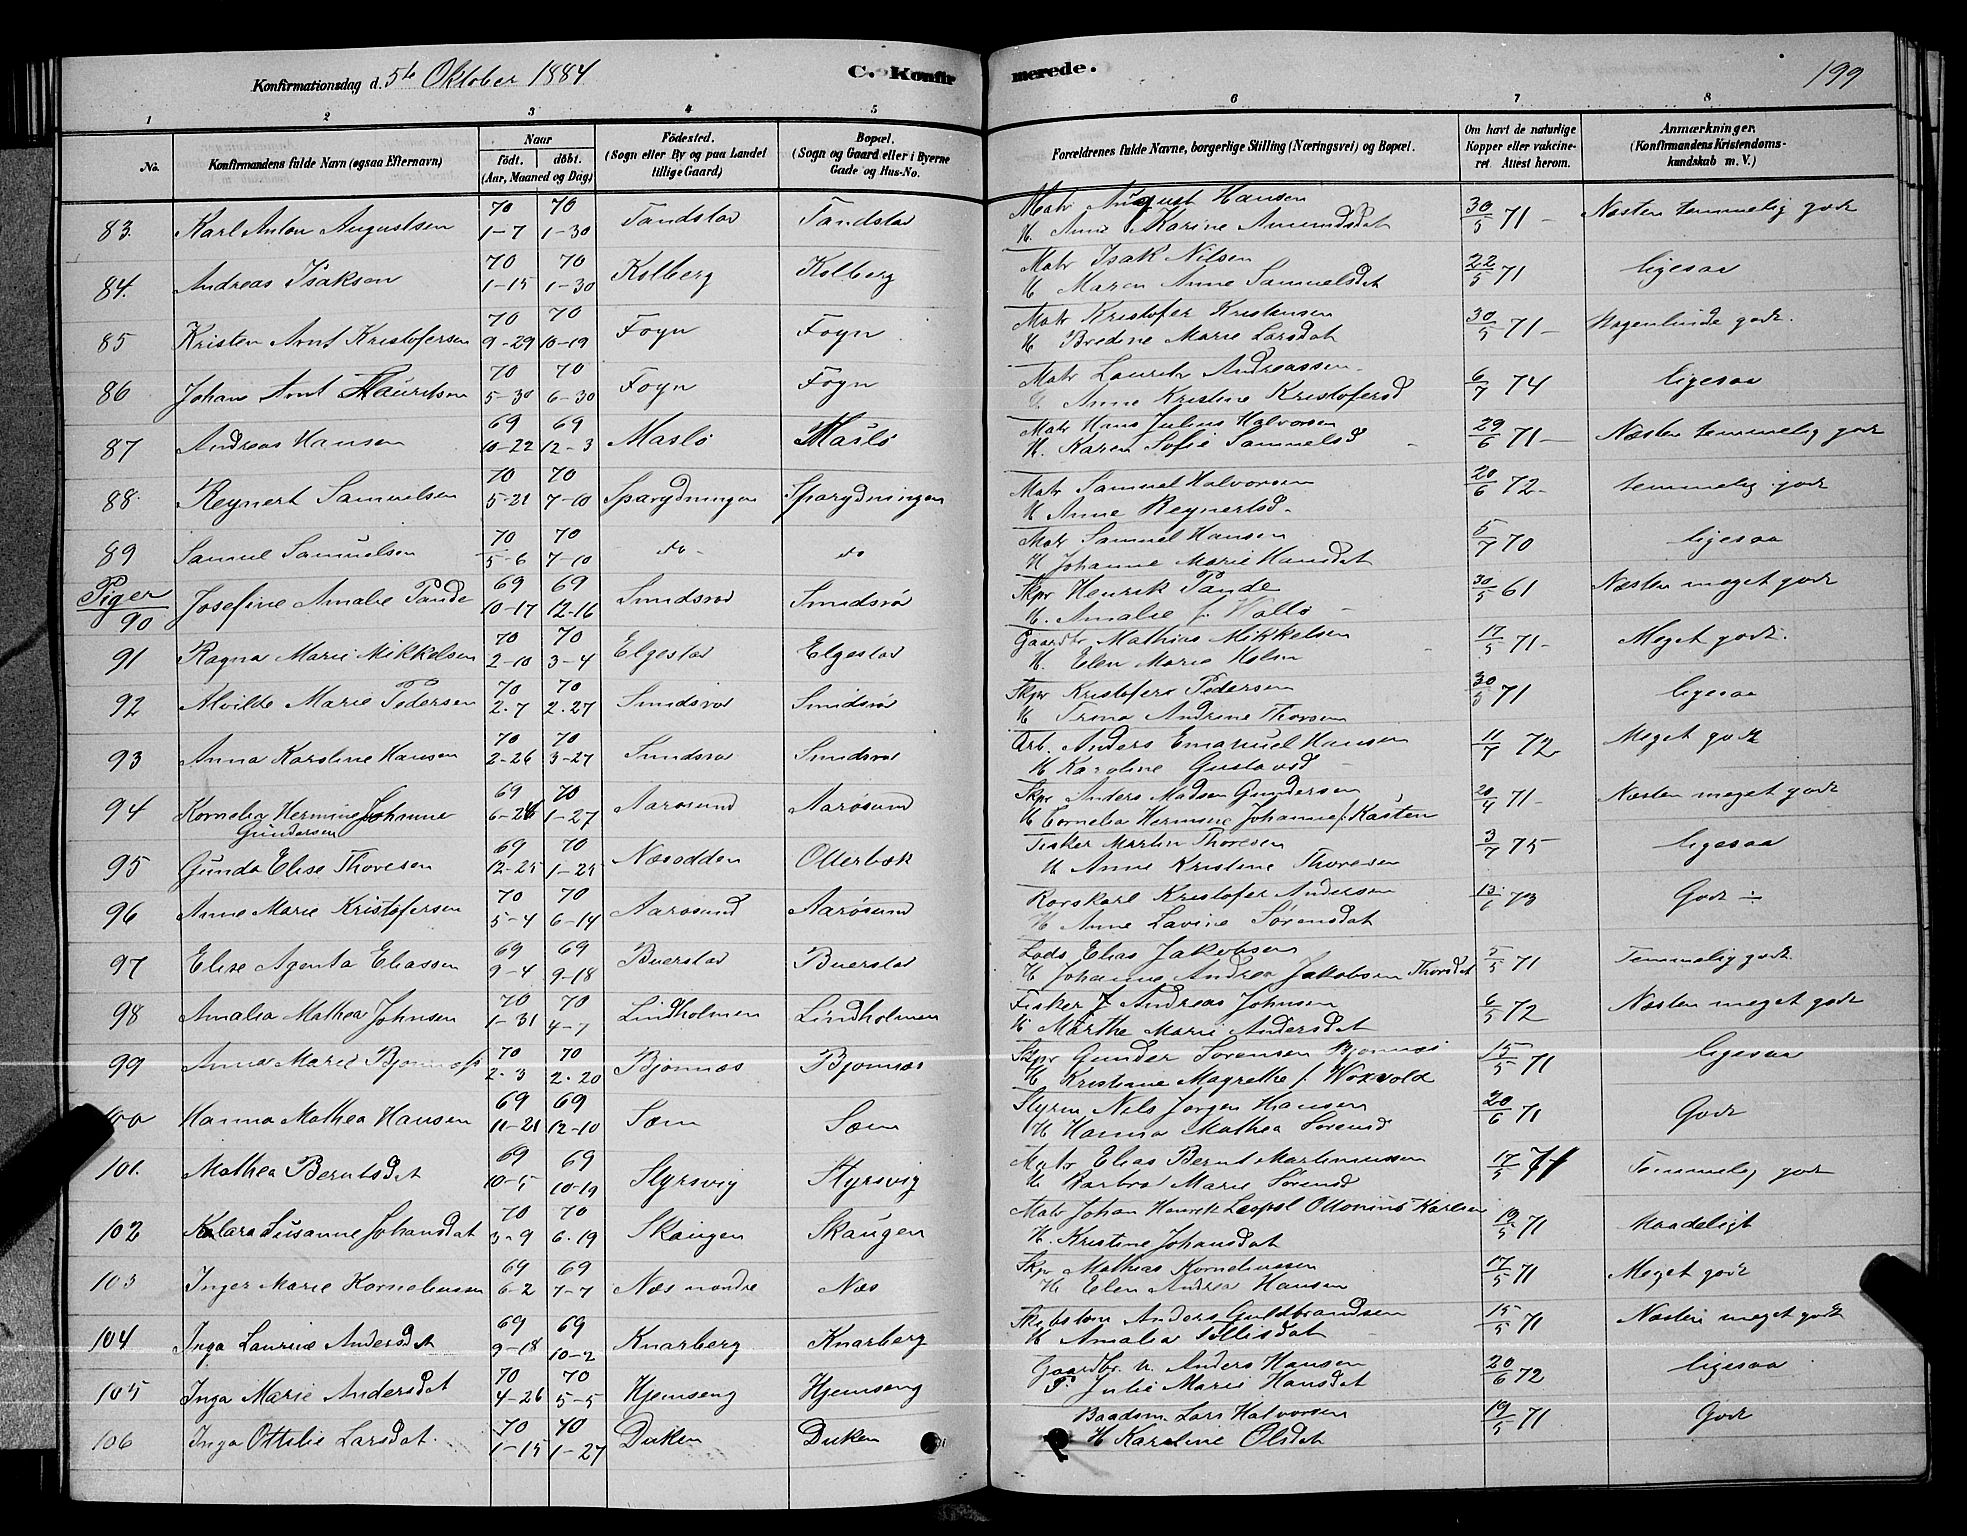 Konfirmationsdag d. 5te Oktober 1884
C. Konfirmerede.
199
1 2 3 4 5 6 7 8
No.
Konfirmandens fulde Navn (ogsaa Efternavn)
Naar
födt. döbt.
(Aar, Maaned og Dag)
Födested.
(Sogn eller By og paa Landet tillige Gaard)
Bopæl.
(Sogn og Gaard eller i Byerne Gade og Hus-No.
Forældrenes fulde Navne, borgerlige Stilling (Næringsvei) og Bopæl.
Om havt de naturlige Kopper eller vakcineret. Attest herom.
Anmærkninger.
(Konfirmandens Kristendomskundskab m. V.)
83. Karl Anton Augustsen 70 1-7 70 1-30 Tandstad Tandstad Matr August Hansen
H. Anne Karine Amundsdat 30/5 71 - Næsten temmelig godt
84. Andreas Isaksen 70 1-15 70 1-30 Kolberg Kolberg Matr Isak Nilsen
H Maren Anne Samuelsdat 22/5 71 ligesaa
85 Kristen Arnt Kristofersen 70 9-29 70 10-19 Fogn Fogn Matr Kristofer Kristensen
H Bredine Marie Larsdat 30/5 71 - Nogenlunde godt.
86 Johan Arnt Lauritsen 70 5-30 70 6-30 Fogn Fogn Matr Lauritz Andreassen
H. Anne Kristine Kristofersd 6/7 74 ligesaa
87 Andreas Hansen 69 10-22 69 12-3 Maslö Maslö Matr Hans Julius Halvorsen
H. Karen Sofie Samuelsd - 29/6 71 - Næsten temmelig godt
88. Reynert Samuelsen 70 5-21 70 7-10 Sparydningen Sparydningen Matr Samuel Halvorsen
H Anne Reynertsd. 20/6 72 - temmelig godt
89 Samuel Samuelsen 70 5-6 70 7-10 do - do Matr Samuel Hansen
H Johanne Marie Hansdat 5/7 70 ligesaa
Piger
90 Josefine Amalie Tande 69 10-17 69 12-16 Smidsrød Smidsrø Skpr Henrik Tande
H. Amalie f. Wallö - 30/5 61 Næsten meget godt
91 Ragna Marie Mikkelsen 70 2-10 70 3-4 Elgestad Elgestad Gaardbr Mathias Mikkelsen
H. Elen Marie Holm 17/5 71 - Meget godt.
92 Alvilde Marie Pedersen 70 2-7 70 2-27 Smidsrød Smidsrø Skpr Kristofer Pedersen
H Trina Andrine Thorsen 30/5 71 ligesaa
93 Anna Karoline Hansen 70 2-26 70 3-27 Smidsrød Smidsrød Arb. Anders Emanuel Hansen
H Karoline Gustavsd - 11/7 72 Meget godt
94 Kornelia Hermine Johanne
Gundersen 69 6-26 70 1-27 Aarosund Aarøsund Skpr Anders Madsen Gundersen
H Cornelia Hermine Johanne f. Kasten 20/4 71 - Næsten meget godt
95 Gunda Elise Thoresen 69 12-25 70 1-25 Næsodden Otterbæk Fisker Martin Thoresen
H Anne Kristine Thoresen 3/7 75 ligesaa
96 Anne Marie Kristofersen 70 5-4 70 6-14 Aarosund Aarøsund Rorskarl Kristofer Andersen
H Anne Lavine Sörensdat 13/6 73 Godt ÷
97 Elise Agenta Eliassen 69 9-4 69 9-18 Buerstad Buerstad Lods Elias Jakobsen
H. Johanne Andrea Jakobsen Thorsdat 5/5 71 Temmelig godt
98 Amalia Mathea Johnsen 70 1-31 70 4-7 Lindholmen Lindholmen Fisker J Andreas Johnsen
H. Marthe Marie Andersdat 6/5 72 Næsten meget godt
99 Anna Marie Bjonnæss 70 2-3 70 2-20 Bjonnæs Bjonnæs Skpr Gunder Sörensen Bjonnæs
H Kristiane Magrethe f. Woxvold 15/5 71 ligesaa
100 Hanna Mathea Hansen 69 11-21 69 12-10 Sæm Sæm Styrm Nils Jorgen Hansen
H Hanna Mathea Sorensd 20/6 71 Godt
101. Mathea Berntsdat 69 10-5 69 10-19 Styrsvig Styrsvig Matr Elias Bernt Martinussen
H Barbro Marie Sorensd 17/5 71 Temmelig godt
102 Klara Susanne Johansdat 70 3-9 70 6-19 Skaugen Skaugen Matr Johan Henrik Leopol Ottonius Karlsen
H. Kristine Johansdat 19/5 71 Maadeligt
103 Inger Marie Korneliussen 69 6-2 69 7-7 Næs nordre Næs Skpr Mathias Korneliussen
H Elen Andrea Hansen 17/5 71 Meget godt
104 Inga Laurine Andersdat 69 9-18 69 10-2 Knarberg Knarberg Skibstom Anders Guldbrandsen
H Amalia Tellisdat 15/5 71 Næsten meget godt
105 Inga Marie Andersdat 70 4-26 70 5-5 Hjemseng Hjemseng Gaardbr. U. Anders Hansen
P. Julie Marie Hansdat 20/6 72 ligesaa
106 Inga Ottilie Larsdat. 70 1-15 70 1-27 Duken Duken Baadsm. Lars Halvorsen
H Karoline Olsdat 19/5 71 Godt